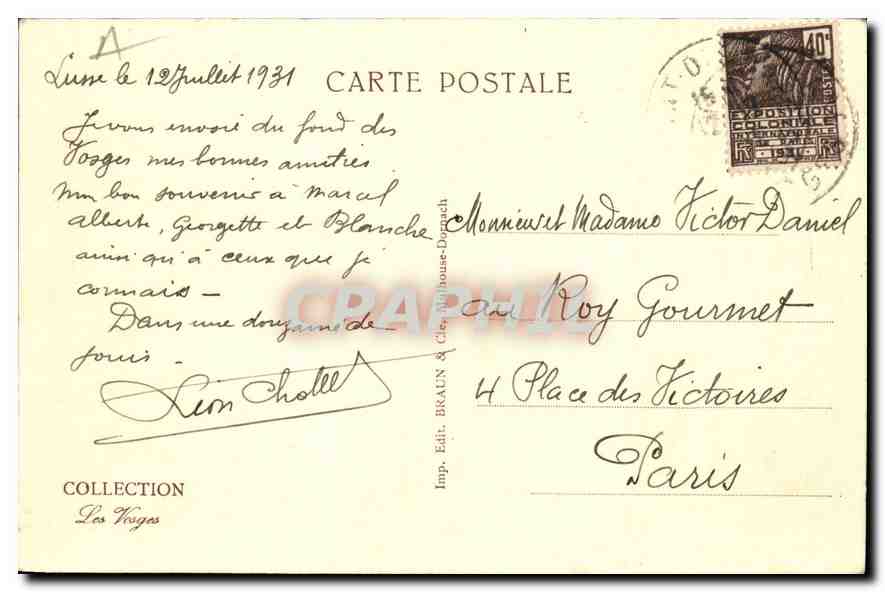 Lusse le 12 Juillet 1931
CARTE POSTALE
Je vous envoie du fond des
Vosges mes bonnes amitiés
mon bon souvenir à Marcel
Alberte, Georgette et Blanche
ainsi qu'à ceux que je
connais –
Dans une douzaine de
jours –
Léon
COLLECTION
Les Vosges
Imp. Edit. BRAUN & Cie, Mulhouse-Dornach
40c
POSTES
EXPOSITION
COLONIALE
INTERNATIONALE
DE PARIS
1931
RF
RF
Monsieur et Madame Victor Daniel
au Roy Gourmet
4 Place des Victoires
Paris
CPAPHIL